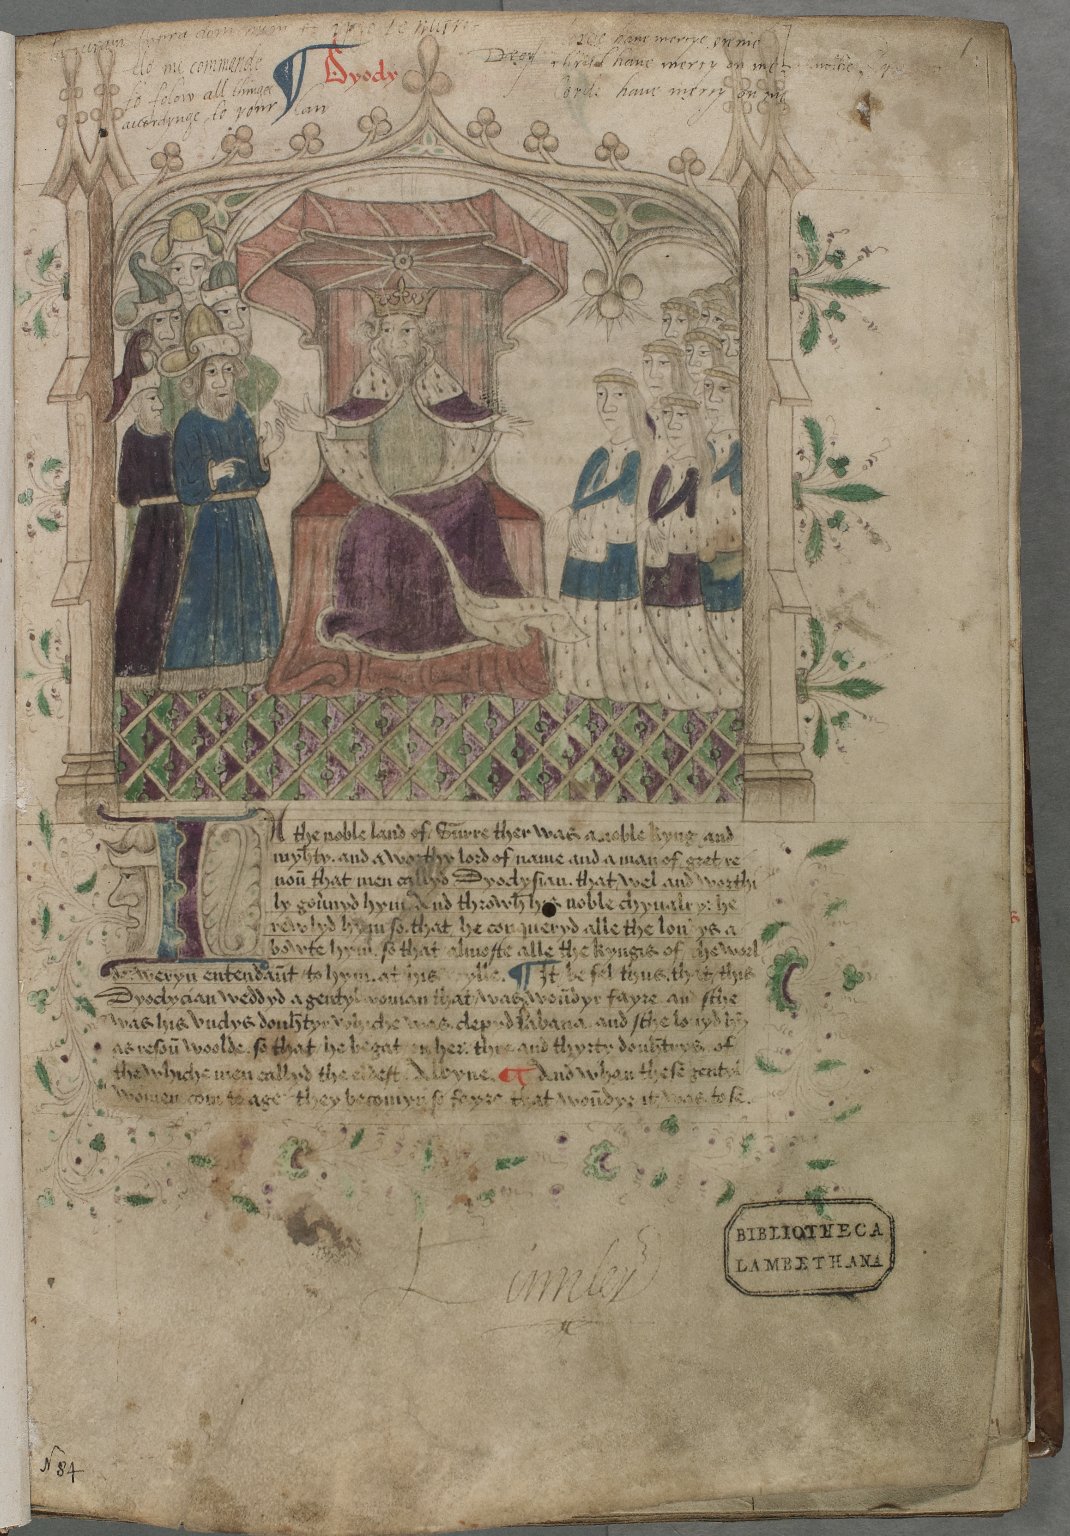 do me commende
to folow all thinges
accordynge to your
lorde have mercye on me
christ have mercy on me
lorde have mercy on me
¶ Dyocly
1
In the noble land of Surre ther was a noble kyng and
myhty. and a worthy lord of name and a man of gret re
noun that men callyd Dyoclysian. that wel and worthi
ly gouernyd hym. And throwh his noble chyualry: he
rewlyd hym so. that he conqueryd alle the londys a
bowte hym. so that almoste alle the kyngis of the worl
de weryn entendaunt to hym. at his wylle. ¶ It be fel thus. that this
Dyoclycian weddyd a gentyl woman that was woundyr fayre. and sche
was his vnclys douhtyr whiche was clepyd Labana. and sche louyd hym
as resoun woolde. so that he begat on her. thre and thyrty douhtrys. of
the whiche men callyd the eldest. Albyne. ¶ And whan these gentyl
women com to age. they becomyn so fayre. that woundyr it was to se.
Lumley
BIBLIOTHECA
LAMBETHANA
N 84